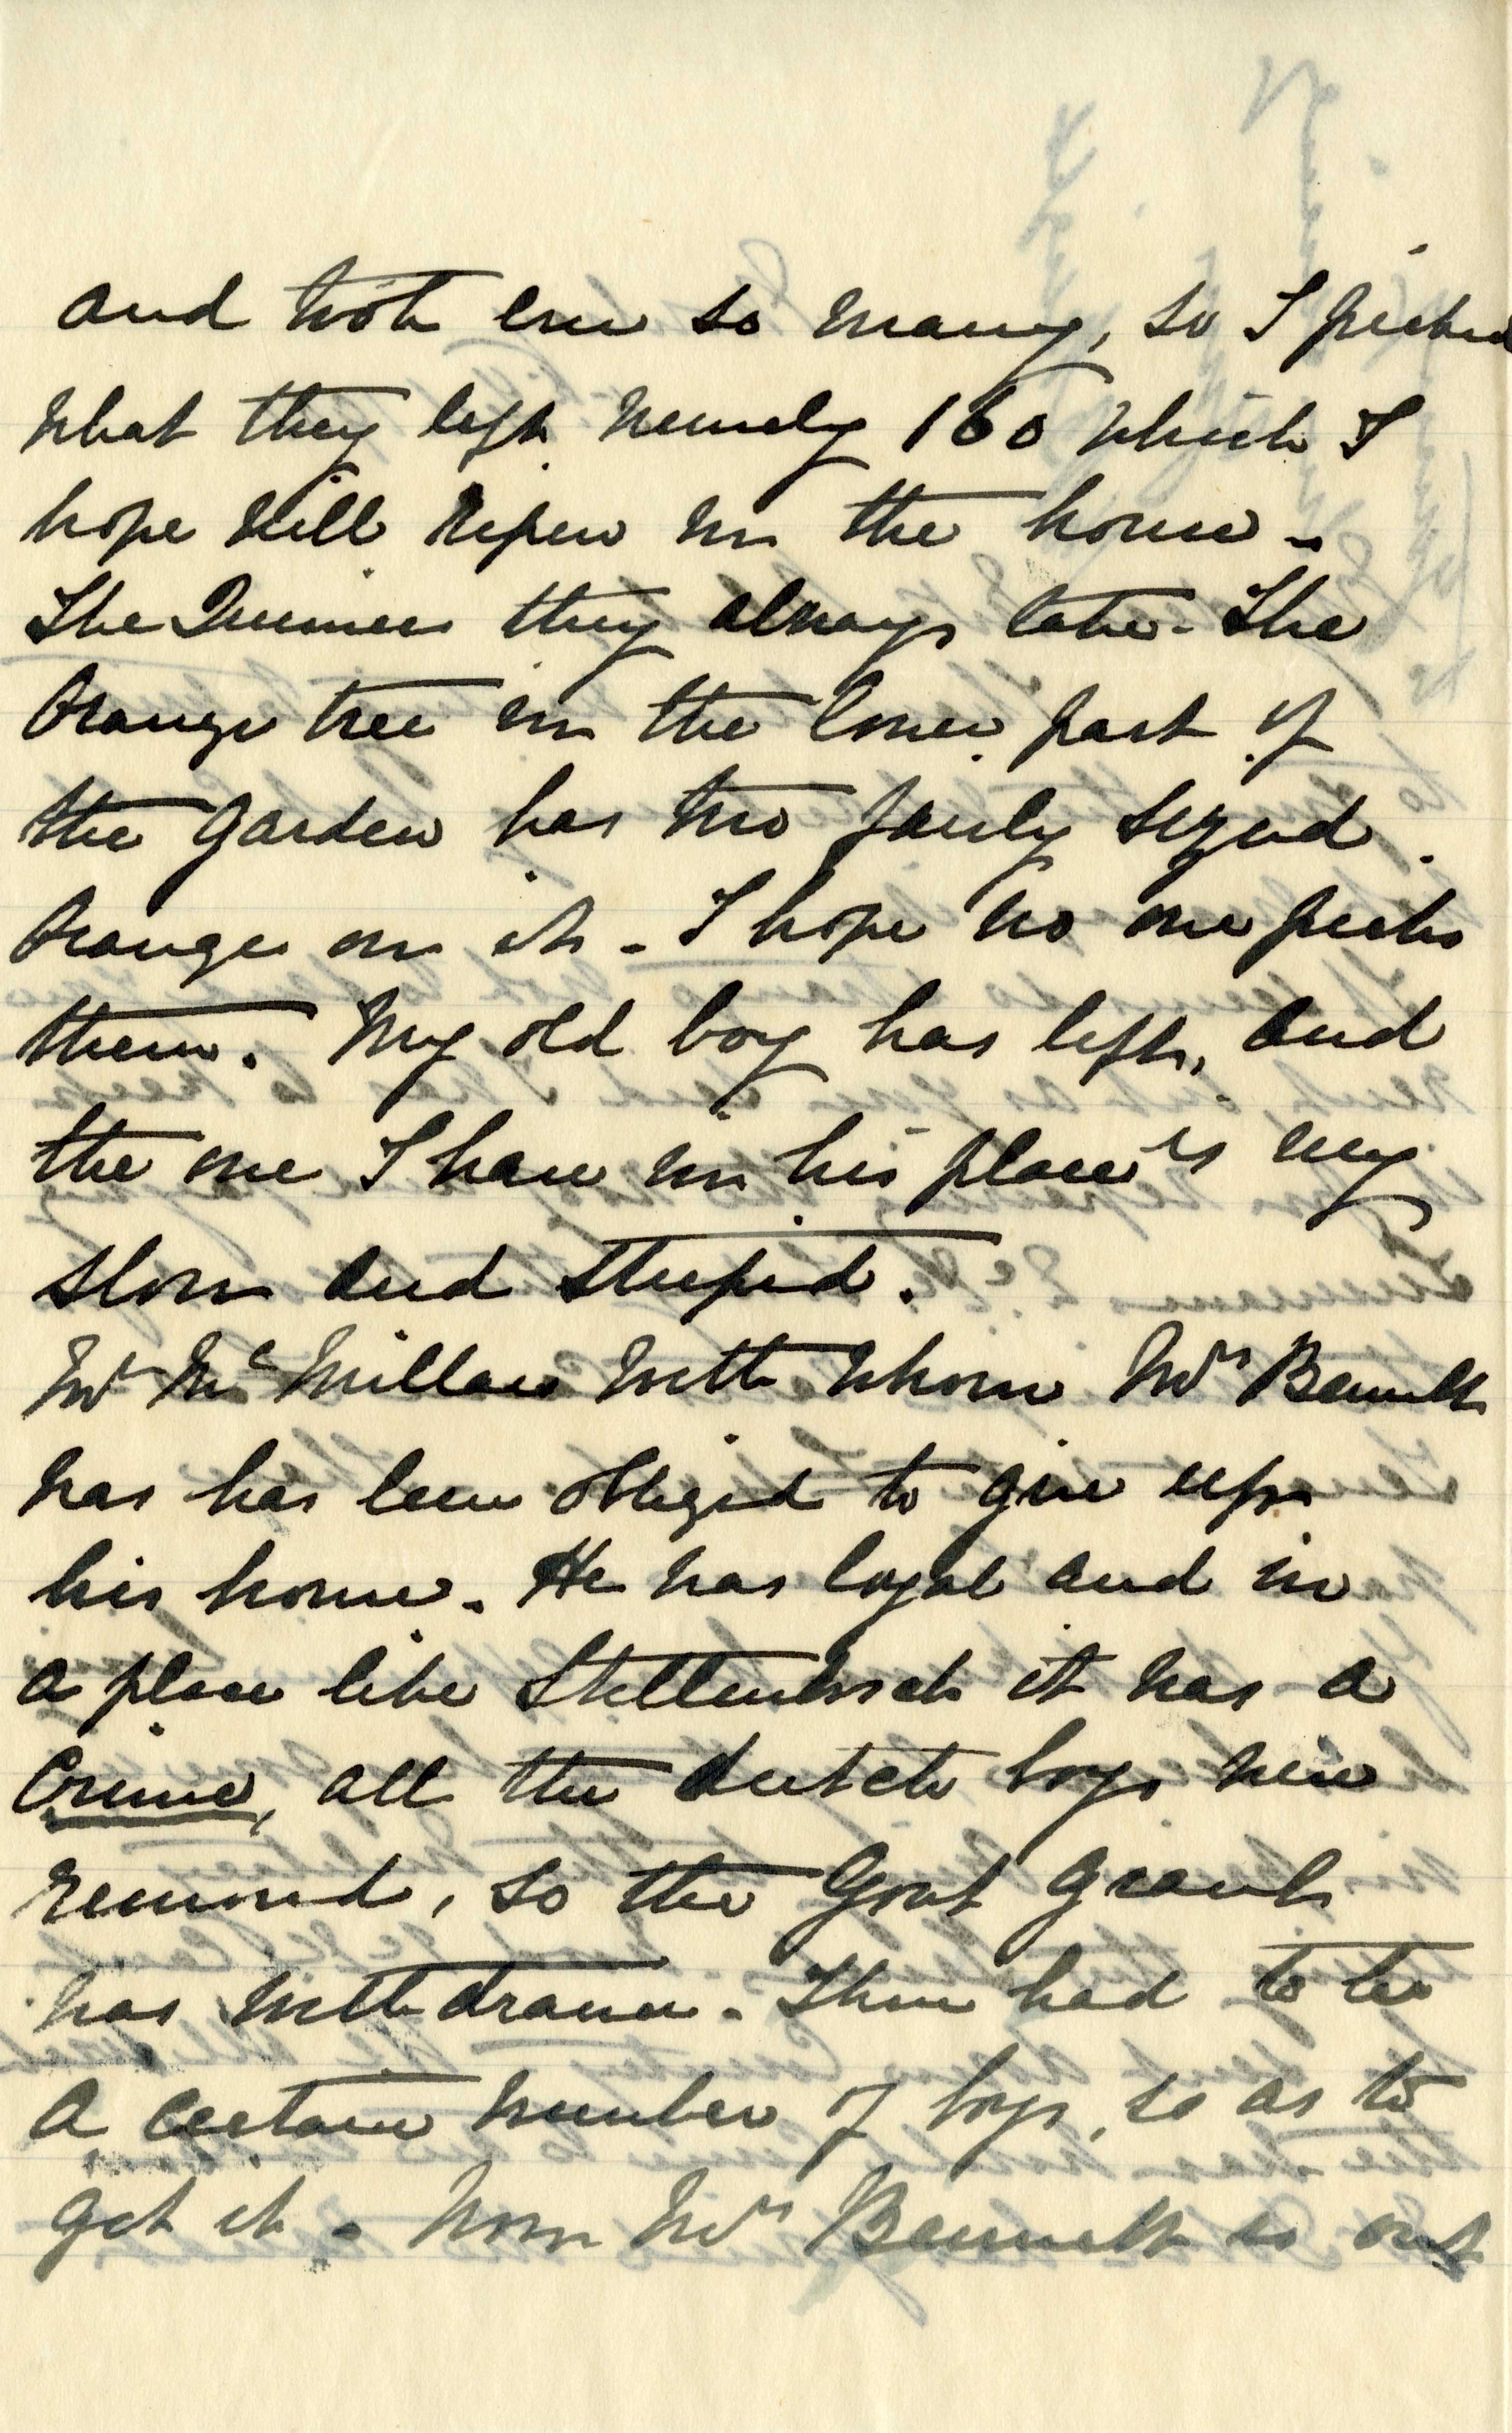 and took ever so many, so I picked
what they left namely 160 which I
hope will ripen in the house –
The Quinces they always take – The
Orange tree in the lower part of
the garden has two fairly sized
Oranges on it – I hope no one picks
them. My old boy has left, and
the one I have in his place is very
slow and stupid.
Mr McMillan with whom Mrs Bennett
was has been obliged to give up
his house – He was loyal and in
a place like Stellenbosch it was a
Crime, all the dutch boys were
removed, so the Govt grant
was withdrawn – There had to be
a certain number of boys, so as to
get it – Now Mrs Bennett is out